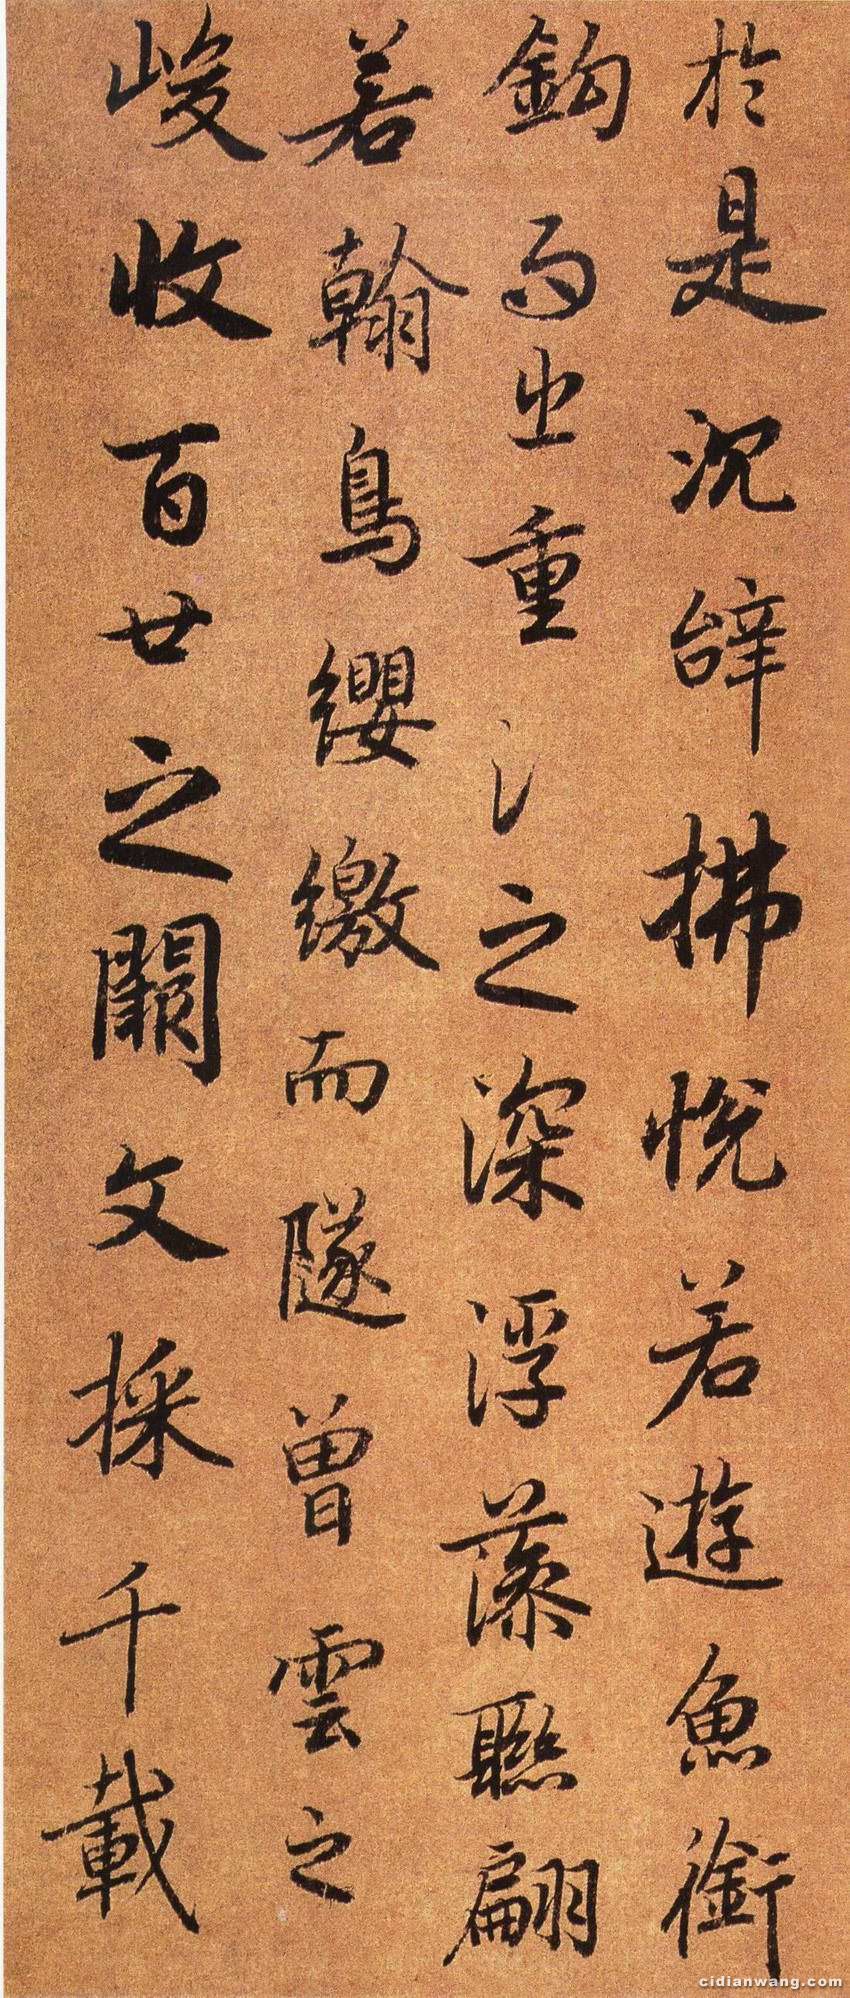 於是沉辭拂悅若遊魚銜
鈎而出重氵之深浮藻聯翩
若翰鳥纓繳而隧曾雲之
峻收百廿之闕文採千載
cidianwang.com